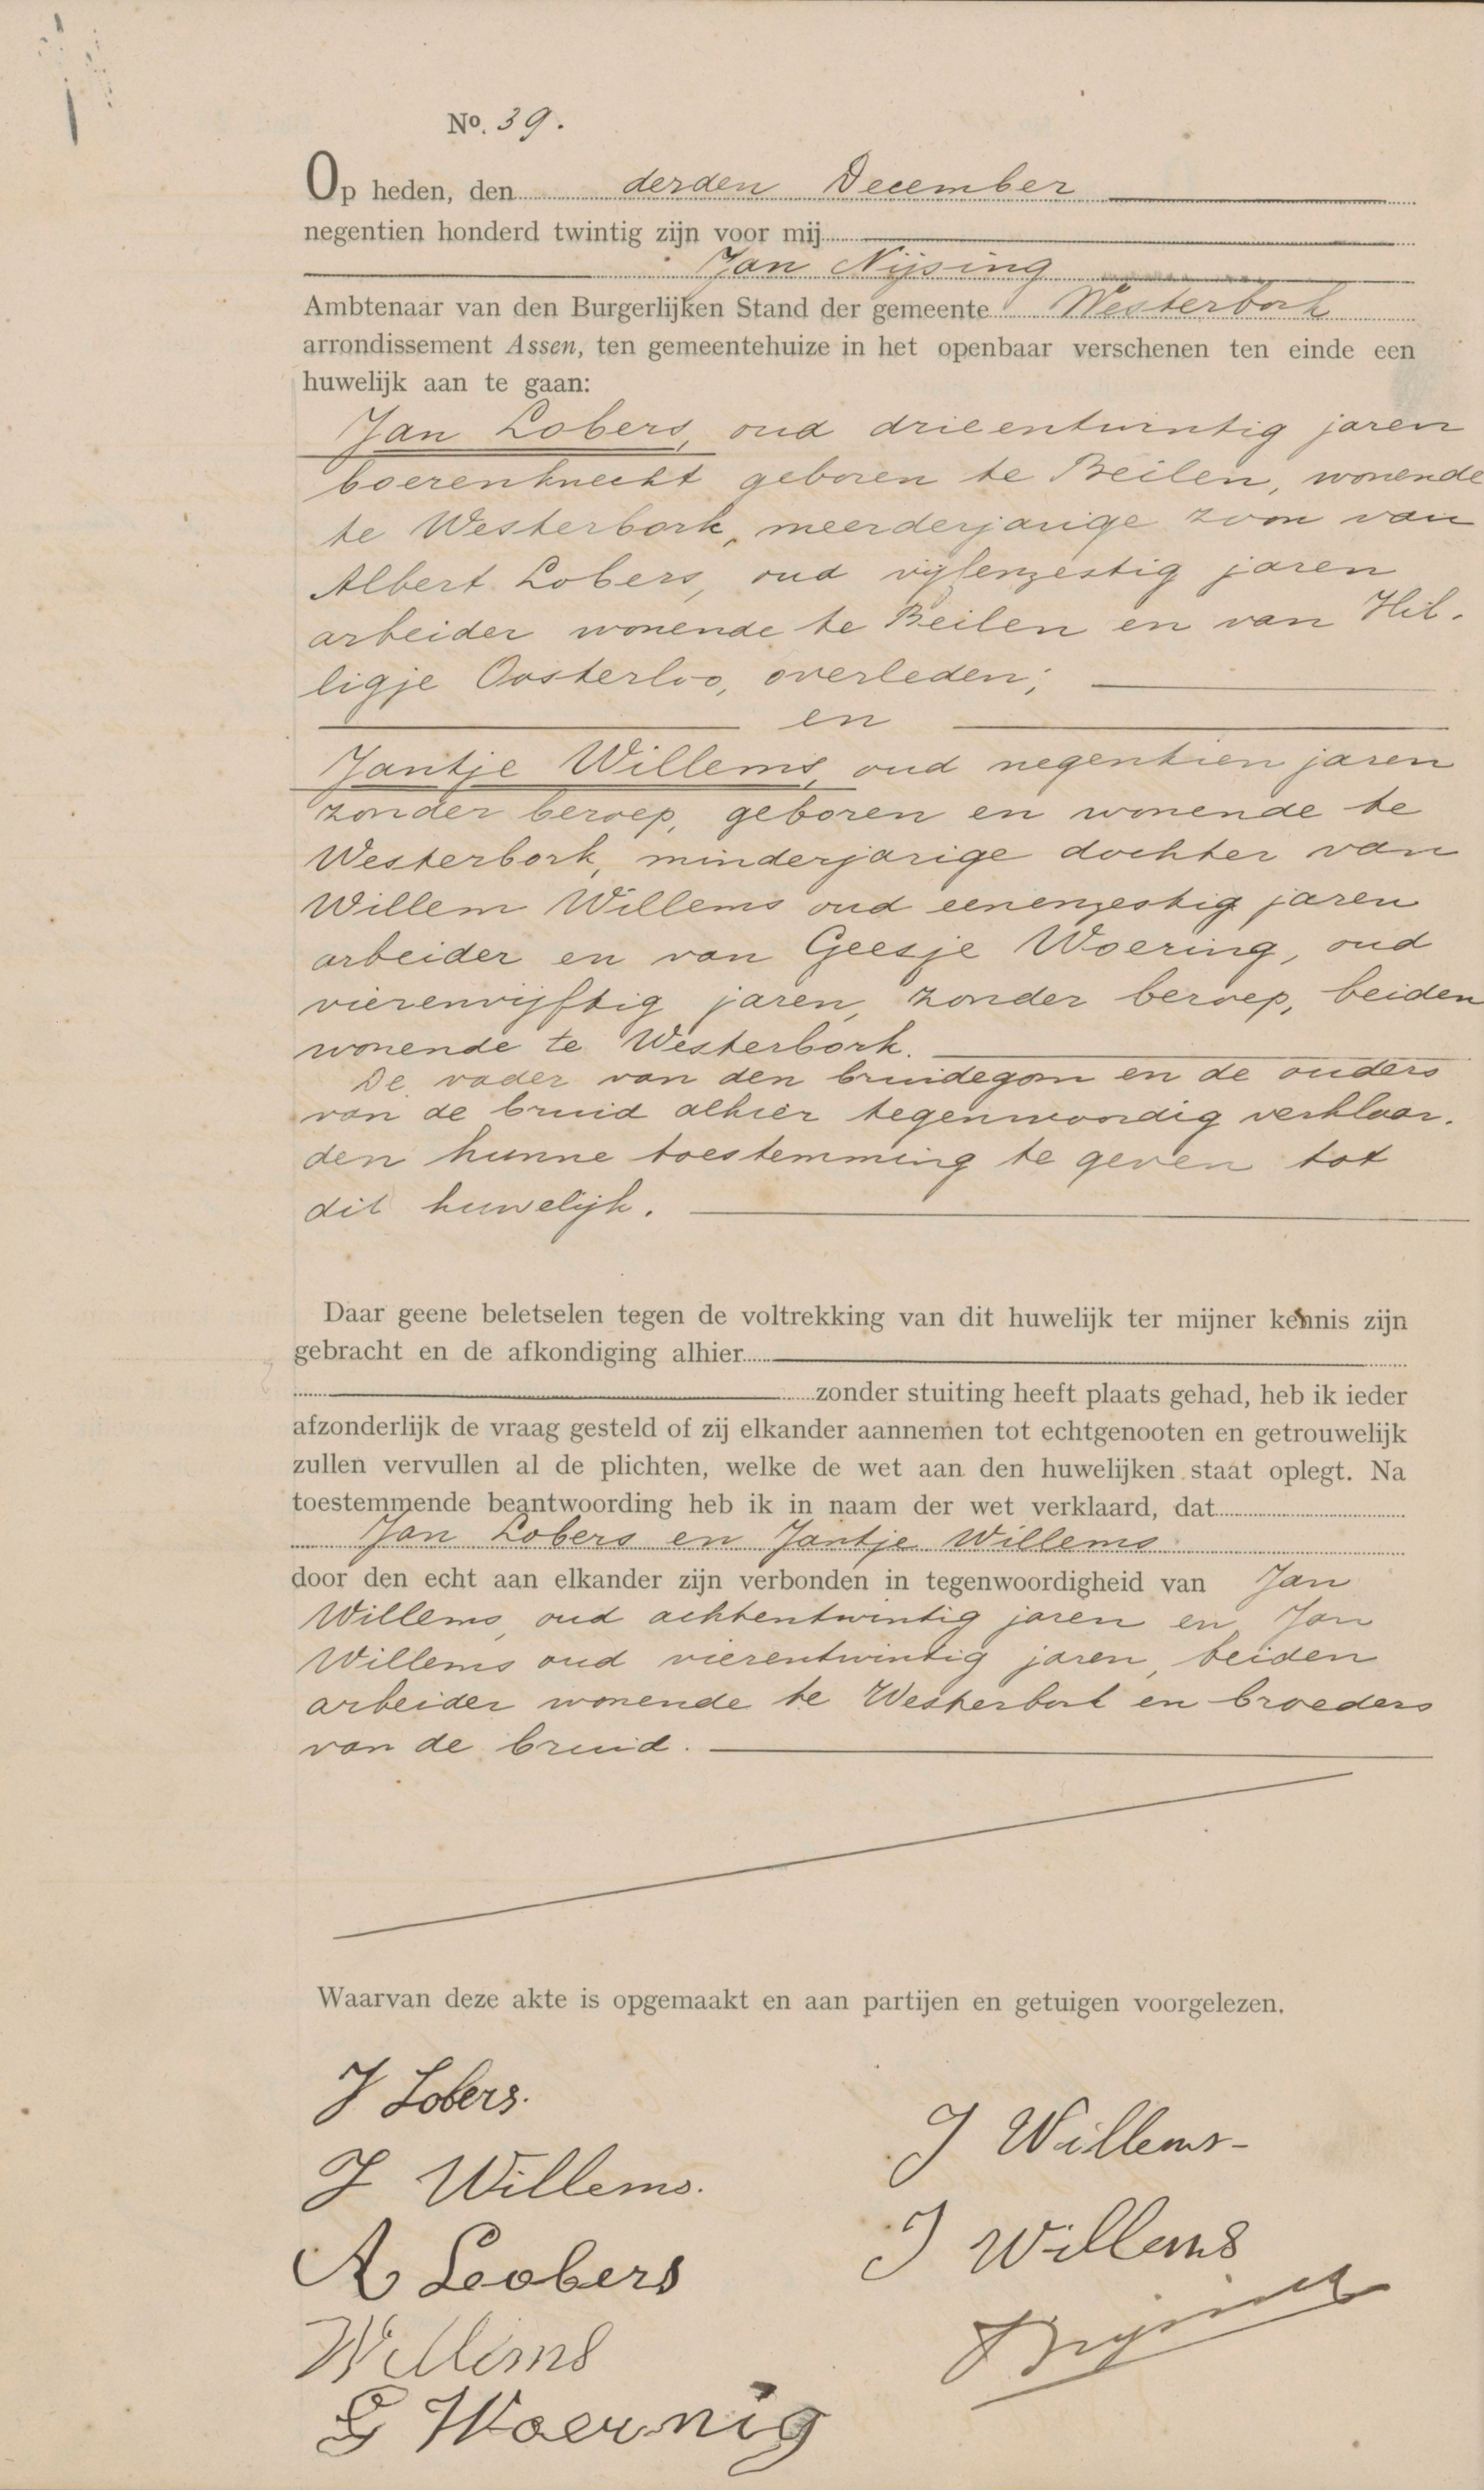 No. 39.
Op heden, den derden December
negentien honderd twintig zijn voor mij
Jan Nijsing
Ambtenaar van den Burgerlijken Stand der gemeente Westerbork
arrondissement Assen, ten gemeentehuize in het openbaar verschenen ten einde een
huwelijk aan te gaan:
Jan Lobers, oud drieentwintig jaren
boerenknecht geboren te Beilen, wonende
te Westerbork, meerderjarige zoon van
Albert Lobers, oud vijfenzestig jaren
arbeider wonende te Beilen en van Hil-
ligje Oosterloo, overleden;
en
Jantje Willems, oud negentien jaren
zonder beroep, geboren en wonende te
Westerbork, minderjarige dochter van
Willem Willems oud eenenzestig jaren
arbeider en van Geesje Woering, oud
vierenvijftig jaren, zonder beroep, beiden
wonende te Westerbork.
De vader van den bruidegom en de ouders
van de bruid alhier tegenwoordig verklaar-
den hunne toestemming te geven tot
dit huwelijk.
Daar geene beletselen tegen de voltrekking van dit huwelijk ter mijner kennis zijn
gebracht en de afkondiging alhier
zonder stuiting heeft plaats gehad, heb ik ieder
afzonderlijk de vraag gesteld of zij elkander aannemen tot echtgenooten en getrouwelijk
zullen vervullen al de plichten, welke de wet aan den huwelijken staat oplegt. Na
toestemmende beantwoording heb ik in naam der wet verklaard, dat
Jan Lobers en Jantje Willems
door den echt aan elkander zijn verbonden in tegenwoordigheid van Jan
Willems, oud achtentwintig jaren en Jan
Willems oud vierentwintig jaren, beiden
arbeider wonende te Westerbork en broeders
van de bruid.
Waarvan deze akte is opgemaakt en aan partijen en getuigen voorgelezen.
J Lobers.
J Willems-
J Willems.
J Willems
A Leobers
Willems
G Woernig